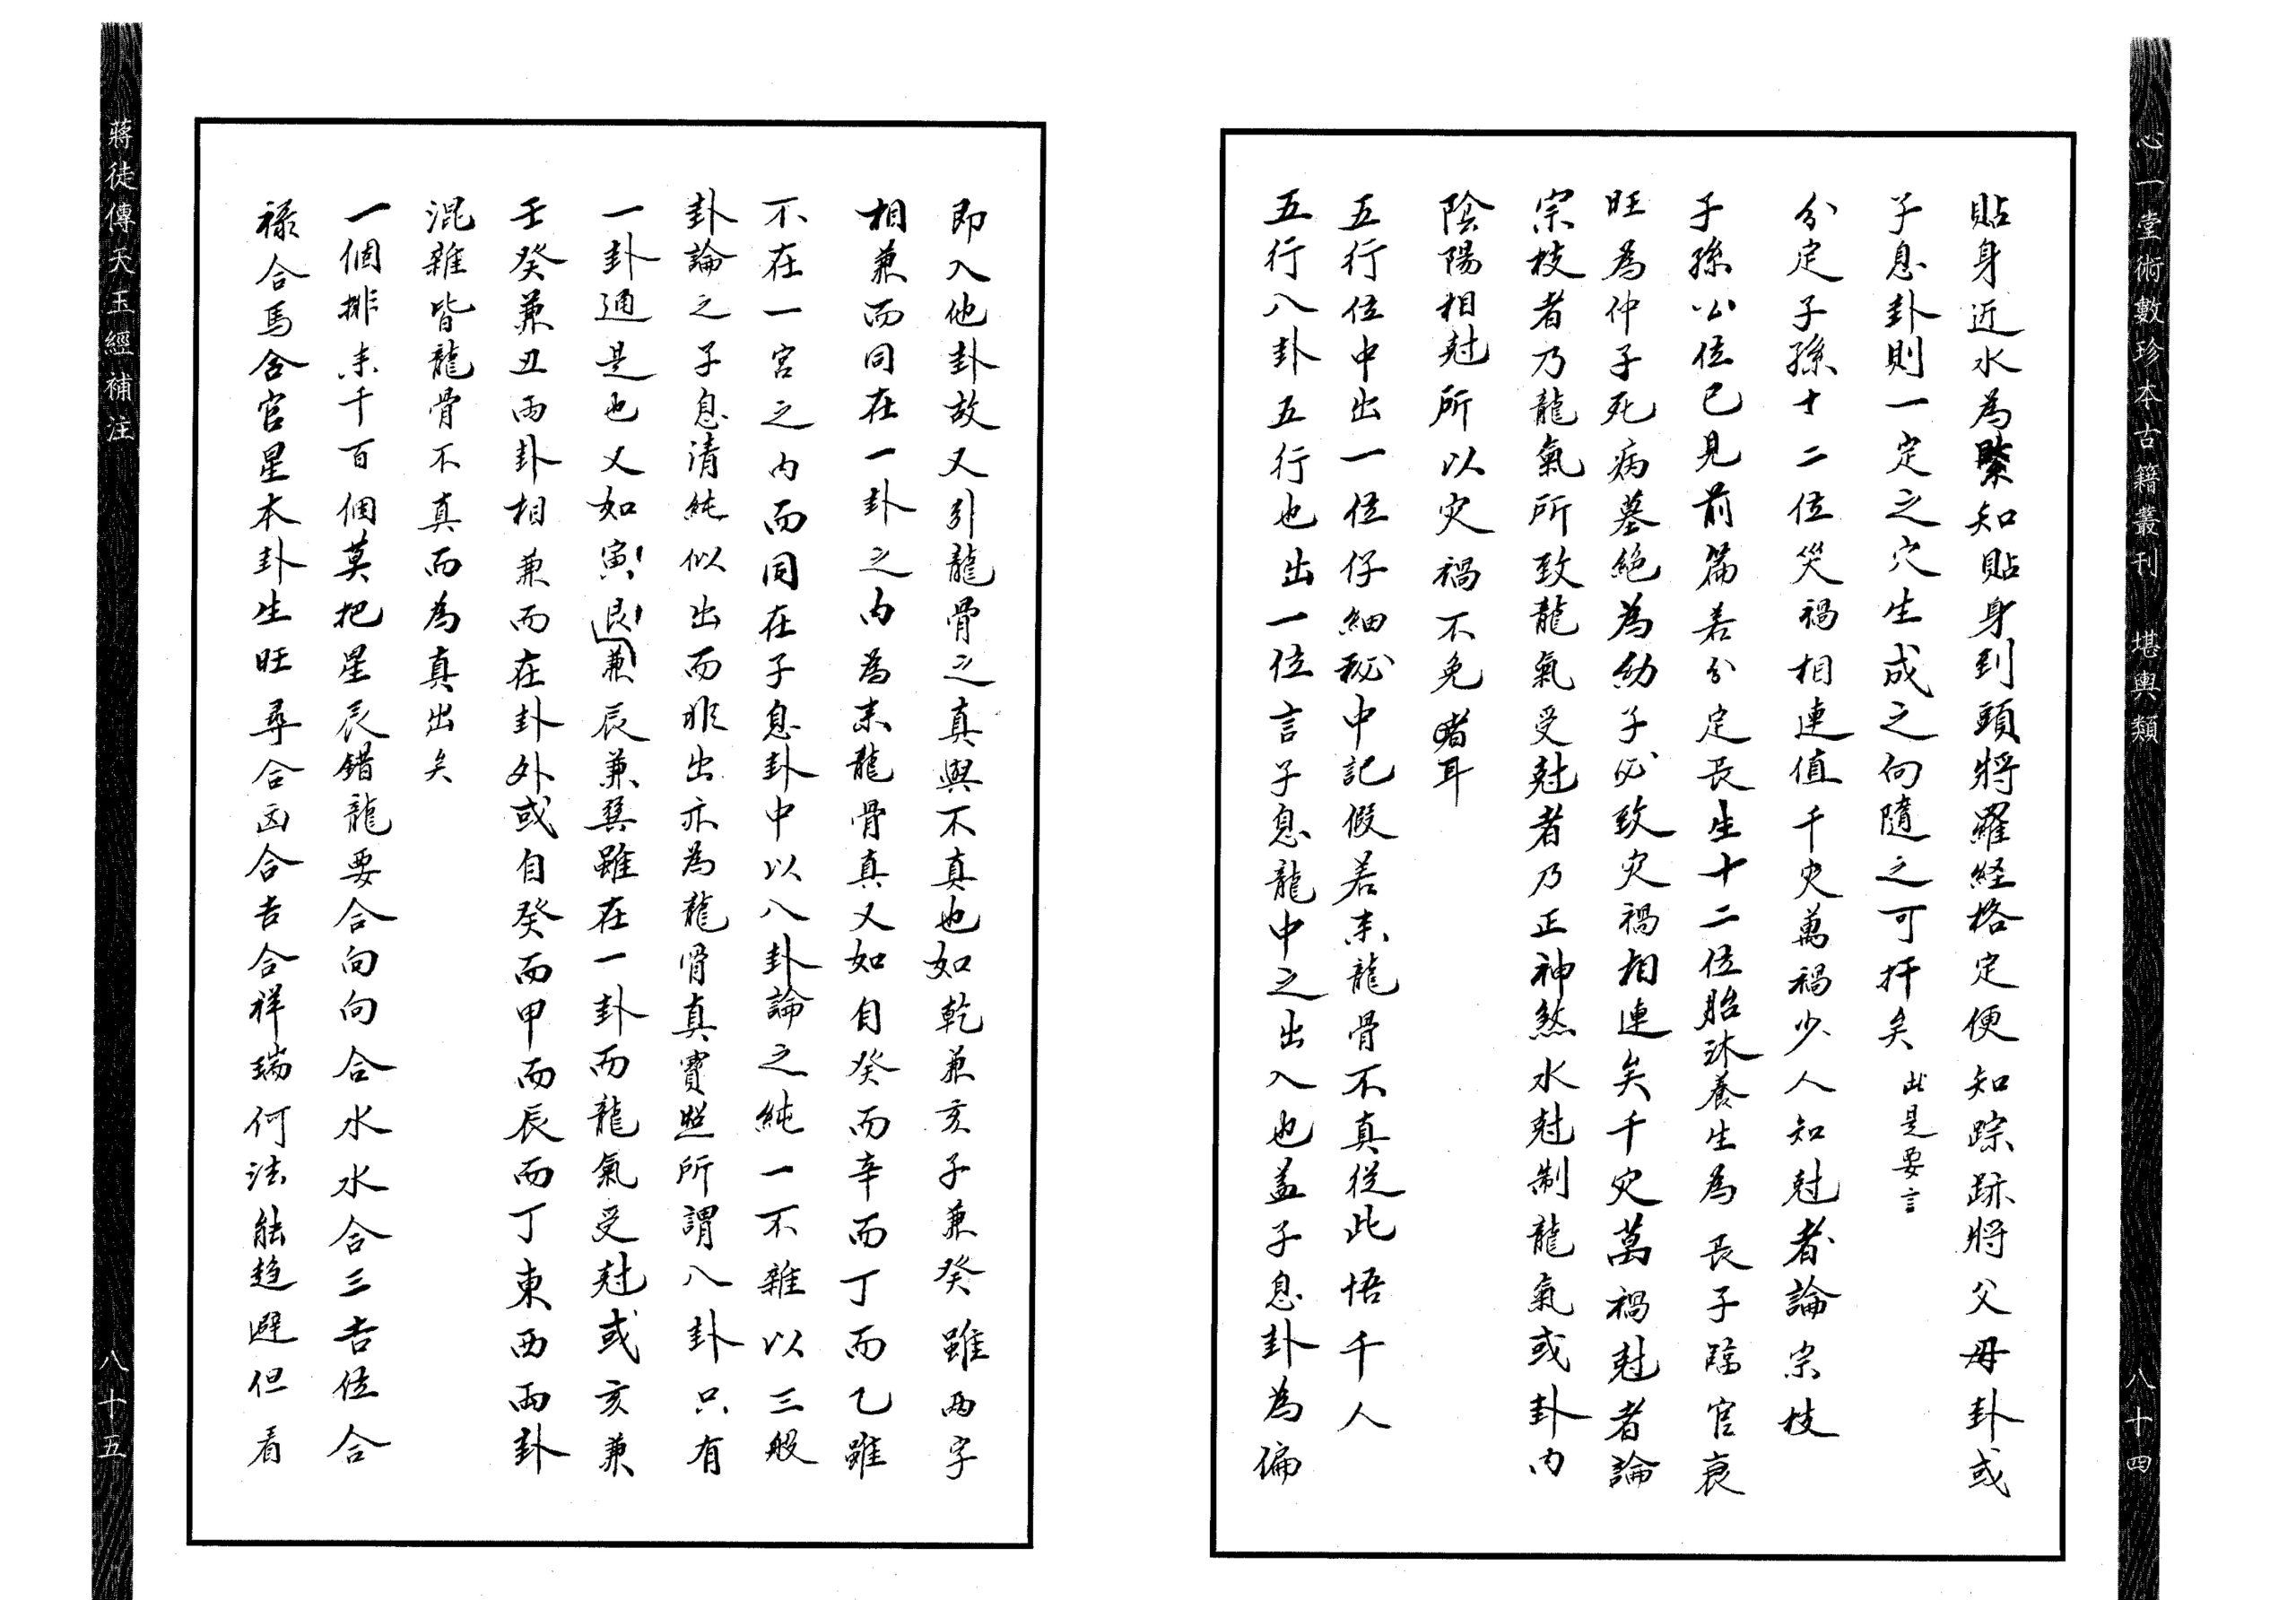 心一堂術數珍本古籍叢刊 堪輿類
八十四
貼身近水為緊知貼身到頭將羅経格定便知踪跡將父母卦或
子息卦則一定之穴生成之向隨之可扦矣 此是要言
分定子孫十二位災禍相連值千灾萬禍少人知尅者論宗枝
子孫公位已見前篇若分定長生十二位胎沐養生為長子臨官衰
旺為仲子死病墓絶為幼子必致灾禍相連矣千灾萬禍尅者論
宗枝者乃龍氣所致龍氣受尅者乃正神煞水尅制龍氣或卦内
陰陽相尅所以灾禍不免者耳
五行位中出一位仔細秘中記假若来龍骨不真従此悟千人
五行八卦五行也出一位言子息龍中之出入也盖子息卦為偏
即入他卦故又引龍骨之真與不真也如乾兼亥子兼癸雖兩字
相兼而同在一卦之内為来龍骨真又如自癸而辛而丁而乙雖
不在一宮之内而同在子息卦中以八卦論之純一不雜以三般
卦論之子息清純似出而非出亦為龍骨真寶照所謂八卦只有
一卦通是也又如寅艮兼辰兼巽雖在一卦而龍氣受尅或亥兼
壬癸兼丑兩卦相兼而在卦外或自癸而甲而辰而丁東西兩卦
混雜皆龍骨不真而為真出矣
一個排来千百個莫把星辰錯龍要合向向合水水合三吉位合
祿合馬合官星本卦生旺尋合凶合吉合祥瑞何法能趋避但看
蔣徒傳天玉經補注
八十五